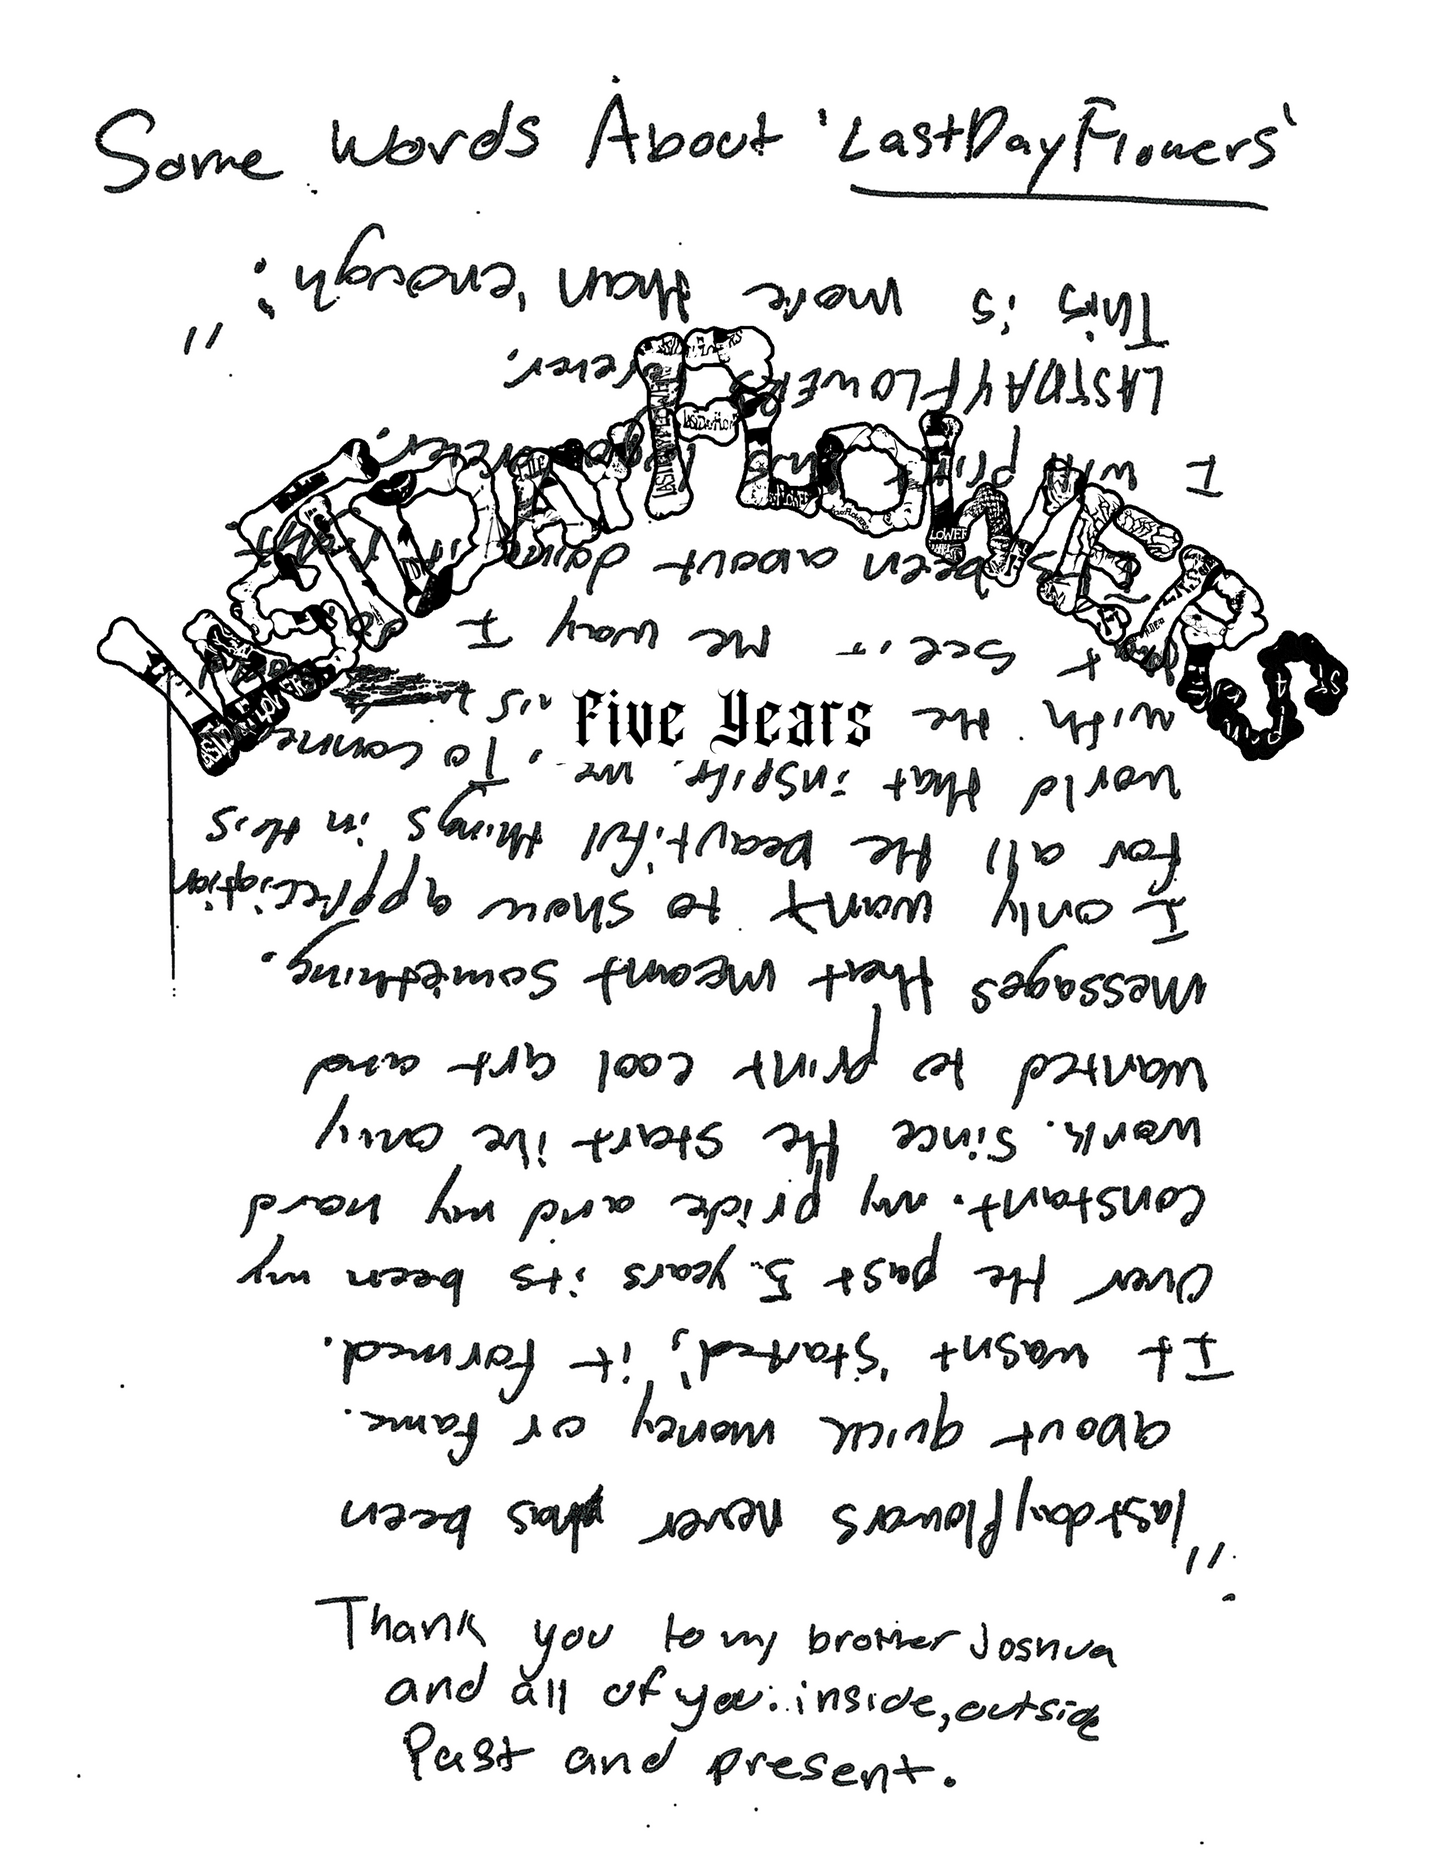 Some Words About 'LastDayFlowers'
LASTDAYFLOWERS
Five Years
"lastdayflowers never has been
about quick money or fame.
It wasnt 'started', it formed.
Over the past 5 years its been my
constant. my pride and my hard
work. Since the start i've only
wanted to print cool art and
messages that meant something.
I only want to show appreciation
for all the beautiful things in this
world that inspire me. To connect
with the
that see it the way I do
been about doing it right
I will print
LASTDAYFLOWERS forever.
This is more than 'enough'."
Thank you to my brother Joshua
and all of you: inside, outside
Past and present.